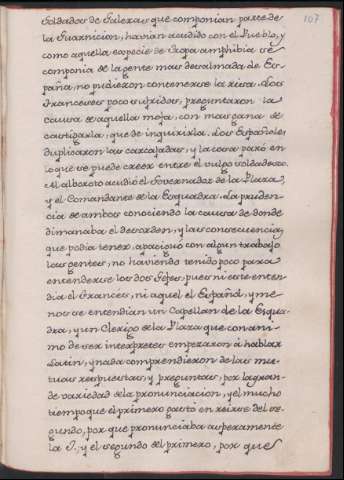 107
Soldados de Galeras que componian parte de
la Guarnicion, havian acudido con el Pueblo, y
como aquella especie de Tropa amphibia se
componia de la gente mas desalmada de Es-
paña, no pudieron contenerse la risa. Los
Franceses poco sufridos, preguntaron la
causa de aquella mofa, con mas gana de
castigarla, que de inquirirla. Los Españoles
duplicaron las carcajadas, y la cosa paró en
lo que se puede creer entre el vulgo soldadesco.
Al alboroto acudió el Governador de la Plaza,
y el Comandante de la Esquadra. La pruden-
cia de ambos conociendo la causa de donde
dimanaba el desorden, y las consecuencias,
que podia tener, apaciguó con algun trabajo
las gentes, no haviendo tenido poco para
entenderse los dos Gefes, pues ni este enten-
dia el Frances, ni aquel el Español, y me-
nos se entendian un Capellan de la Esqua-
dra, y un Clerigo de la Plaza que con ani-
mo de ser interpretes empezaron á hablar
Latin, y nada comprendieron de las mu-
tuas respuestas, y preguntas, por la gran-
de variedad de la pronunciacion, y el mucho
tiempo que el primero gastó en reirse del se-
gundo, por que pronunciaba asperamente
la J. y el segundo del primero, por que